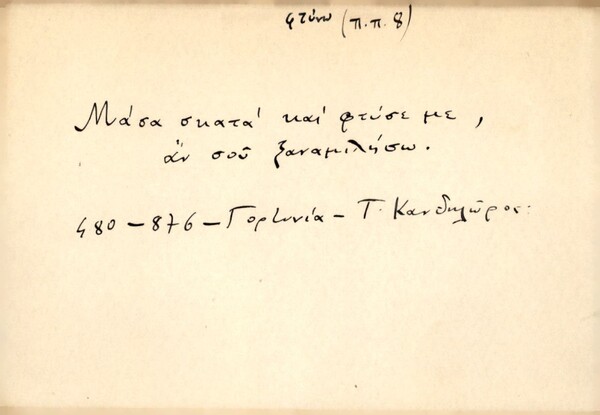 φτύνω (π.π. 8)
Μάσα σκατά καί φτύσε με,
ἄν σοῦ ξαναμιλήσω.
480 – 876 – Γορτυνία – Τ. Κανδηλῶρος.